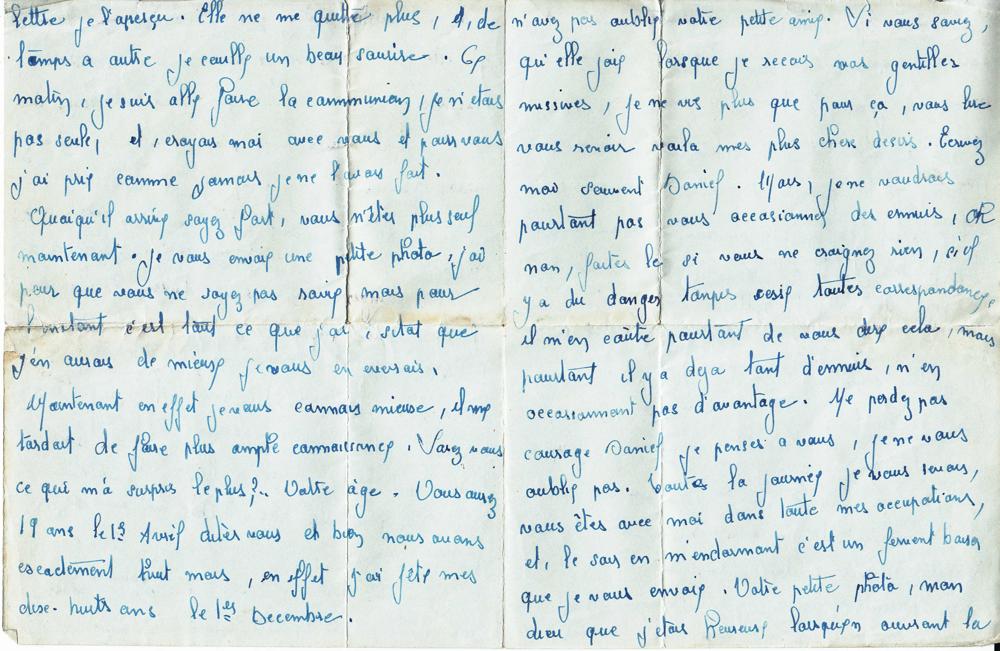 lettre je l'aperçu. Elle ne me quitte plus, et, de
temps a autre je cueille un beau sourire. Ce
matin, je suis allé faire la communion, je n'étais
pas seule, et, croyais moi avec vous et pour vous
j'ai prié comme jamais je ne l'avais fait.
Quoiqu'il arrive soyez fort, vous n'êtes plus seul
maintenant. Je vous envoie une petite photo, j'ai
peur que vous ne soyez pas ravie mais pour
l'instant c'est tout ce que j'ai, sitat que
j'en aurais de mieux je vous en enverais.
Maintenant en effet je vous connais mieux, il me
tardait de faire plus ample connaissance. Savez vous
ce qui m'a surpris le plus?.. Votre âge. Vous aurez
19 ans le 13 Avril dites vous et bien nous avons
exactement huit mois, en effet j'ai fêté mes
dix-huits ans le 1er Decembre.
n'avez pas oublié votre petite amie. Si vous saviez,
qu'elle joie lorsque je recois vos gentilles
missives, je ne vis plus que pour ça, vous lire
vous revoir voila mes plus chers desirs. Ecrivez
moi souvent Daniel. Mais, je ne voudrais
pourtant pas vous occasionner des ennuis, oh
non, faites le si vous ne craignez rien, s'il
y a du danger tanpis cessez toutes correspondances,
il m'en coûte pourtant de vous dire cela, mais
pourtant il y a deja tant d'ennuis, n'en
occasionnent pas d'avantage. Ne perdez pas
courage Daniel je penser a vous, je ne vous
oublie pas. Toutes la journée je vous revois,
vous êtes avec moi dans toute mes occupations,
et, le soir en m'endormant c'est un fervent baiser
que je vous envoie. Votre petite photo, mon
dieu que j'étais heureuse lorsqu'en ouvrant la